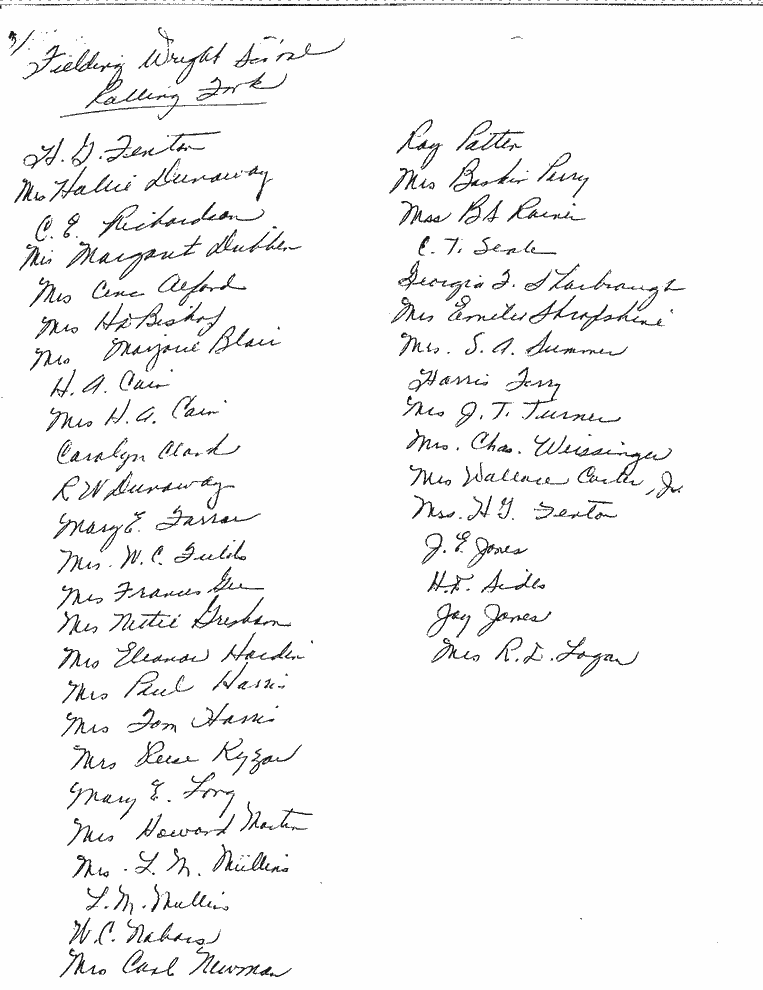 3/
Fielding Wright School
Rolling Fork
H. G. Fenton
Mrs Hallie Dunaway
C. E. Richardson
Mrs Margaret Dubben
Mrs Alford
Mrs Bishop
Mrs Marjorie Blair
H. A. Cain
Mrs H. A. Cain
Carolyn Clark
R W Dunaway
Mary E. Farrar
Mrs. W. C. Fields
Mrs Frances Gee
Mrs Nettie Gresham
Mrs Eleanor Hardin
Mrs Paul Harris
Mrs Tom Harris
Mrs Reese Kyzar
Mary E. Long
Mrs Howard Martin
Mrs. L. M. Mullins
L. M. Mullins
W. C. Nabors
Mrs Carl Newman
Roy Patten
Mrs Baskin Perry
Mrs B S Rainer
C. T. Seale
Georgia F. Scarbraugh
Mrs Emilie Shropshire
Mrs. S. A. Summer
Harris Terry
Mrs J. T. Turner
Mrs. Chas. Weissinger
Mrs Wallace Carter, Jr.
Mrs. H G. Fenton
J. E. Jones
H. F. Sides
Jay Jones
Mrs R. L. Logan